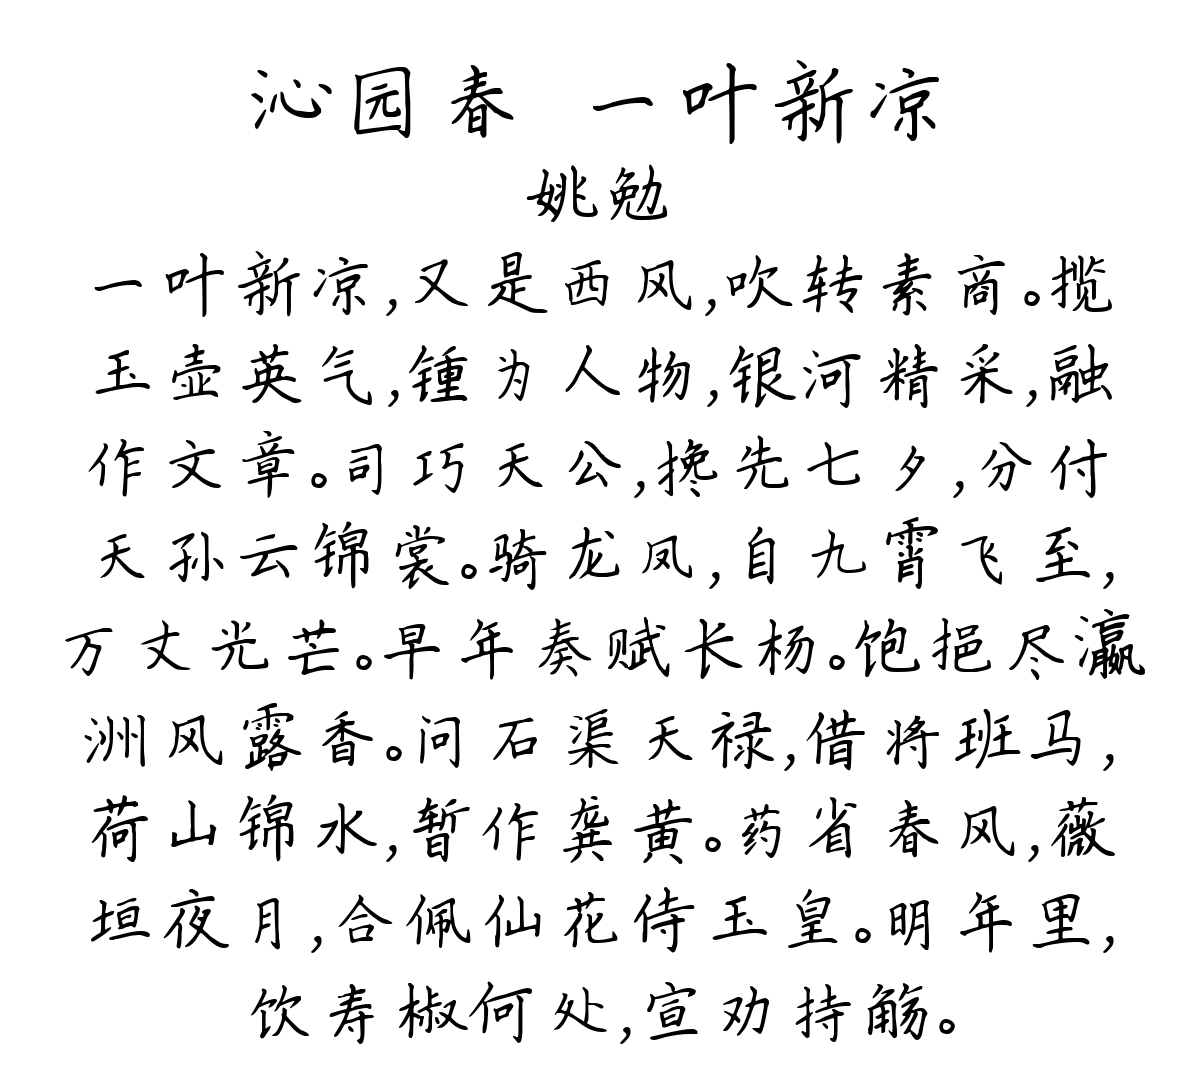 沁园春 一叶新凉
姚勉
一叶新凉,又是西风,吹转素商。揽
玉壶英气,锺为人物,银河精采,融
作文章。司巧天公,搀先七夕,分付
天孙云锦裳。骑龙凤,自九霄飞至,
万丈光芒。早年奏赋长杨。饱挹尽瀛
洲风露香。问石渠天禄,借将班马,
荷山锦水,暂作龚黄。药省春风,薇
垣夜月,合佩仙花侍玉皇。明年里,
饮寿椒何处,宣劝持觞。